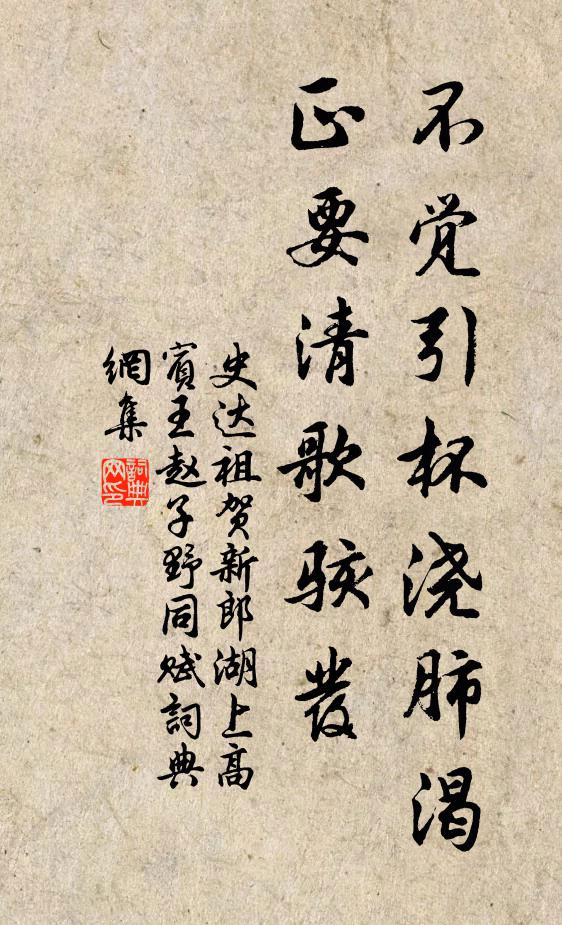 不觉引杯浇肺渴
正要清歌骇發
史达祖贺新郎湖上高
賓王赵子野同赋詞典
網集
詞典
网印